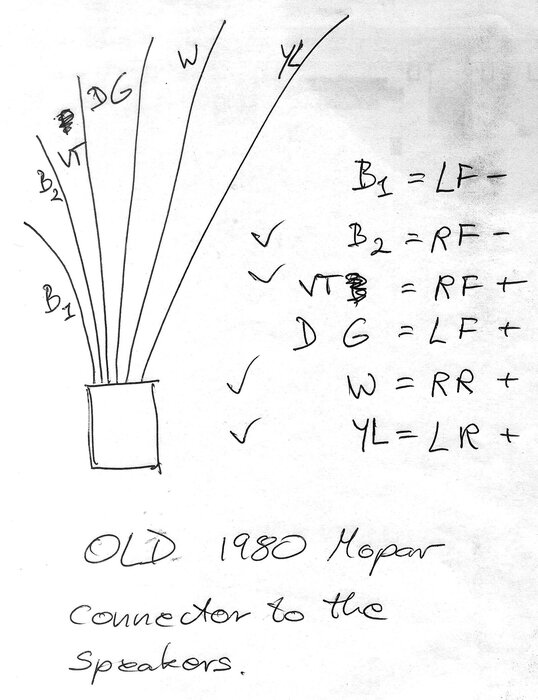 B1
B2
VT
DG
W
YL
B1 = LF -
✓ B2 = RF -
✓ VT = RF +
DG = LF +
✓ W = RR +
✓ YL = LR +
OLD 1980 Mopar
connector to the
speakers.